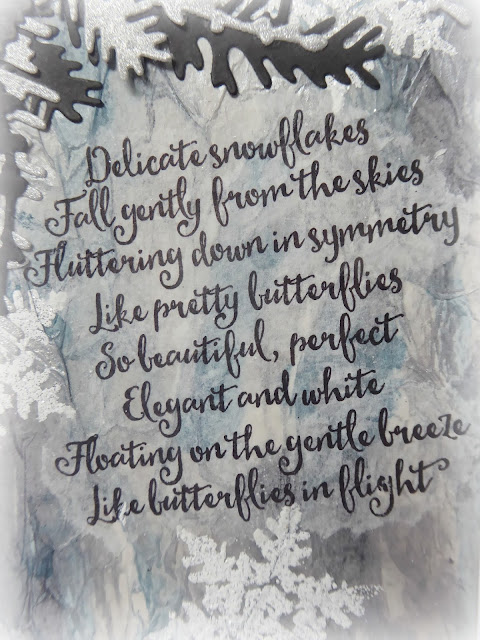 Delicate snowflakes
Fall gently from the skies
Fluttering down in symmetry
Like pretty butterflies
So beautiful, perfect
Elegant and white
Floating on the gentle breeze
Like butterflies in flight